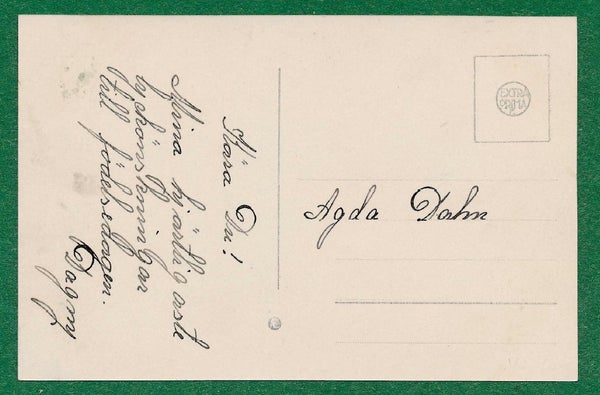 Kära Du!
Mina hjärtligaste
lyckönskningar
till födelsedagen.
Dagny
Agda Dahn
EXTRA
PRIMA